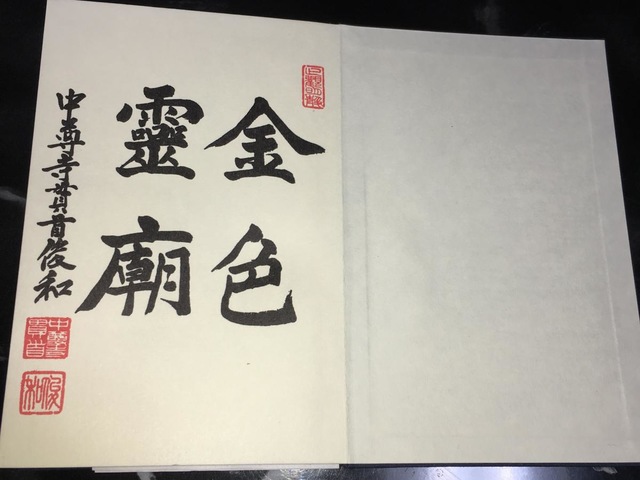 金色
靈廟
中尊寺貫首俊和
中尊寺
貫首
俊和